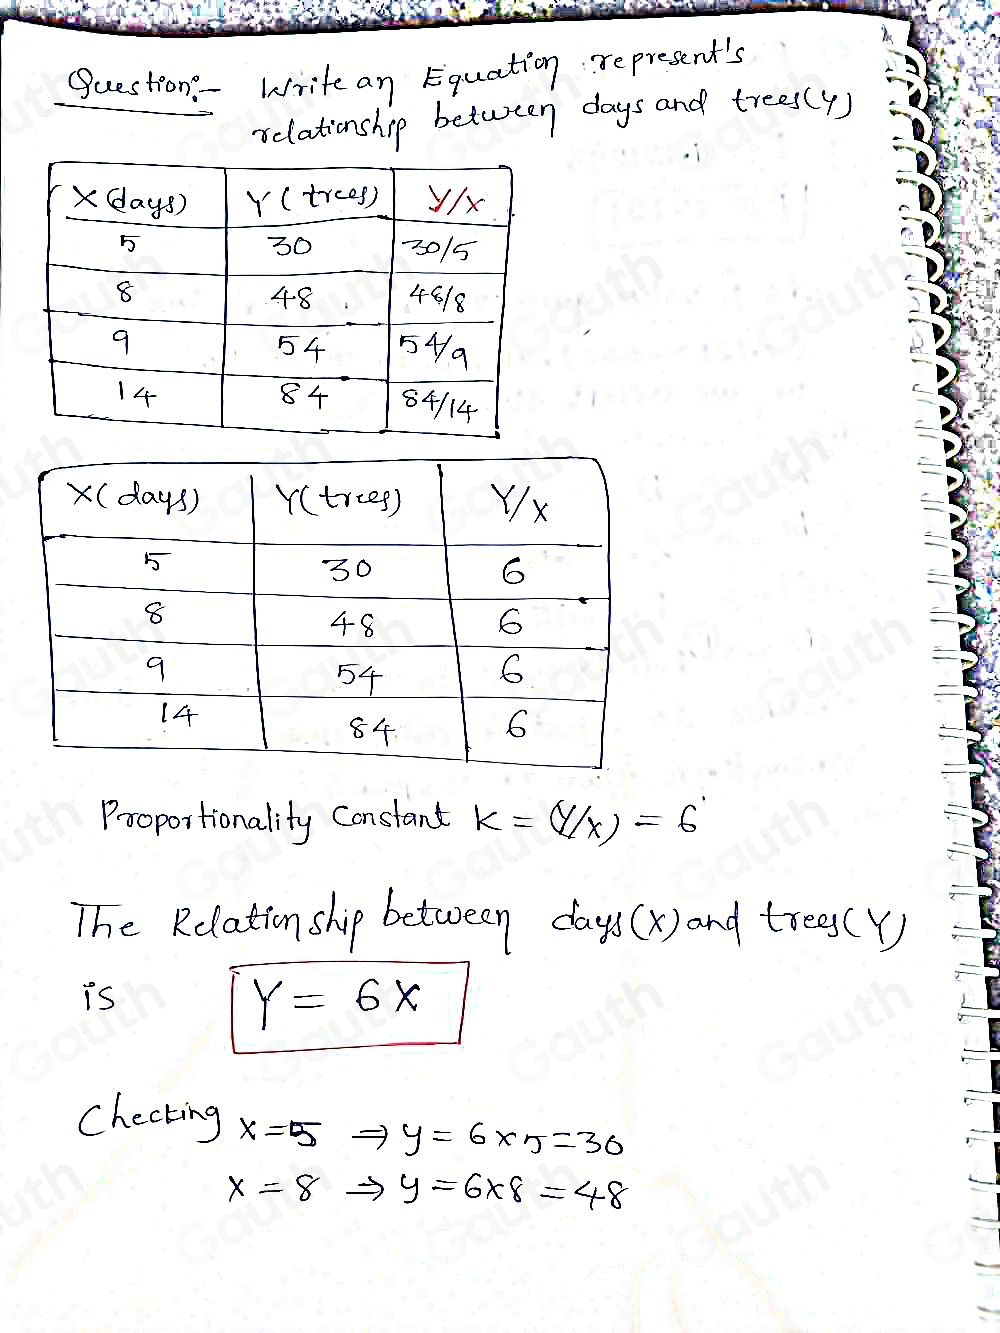 Question:- Write an Equation represent's
relationship between days and trees(y)
X(days) Y(trees) Y/X
5 30 30/5
8 48 48/8
9 54 54/9
14 84 84/14
X(days) Y(trees) Y/X
5 30 6
8 48 6
9 54 6
14 84 6
Proportionality Constant K = (Y/X) = 6
The Relationship between days(X) and trees(Y)
is Y = 6X
Checking x=5 ⇒ y = 6×5=30
x = 8 ⇒ y = 6×8 = 48